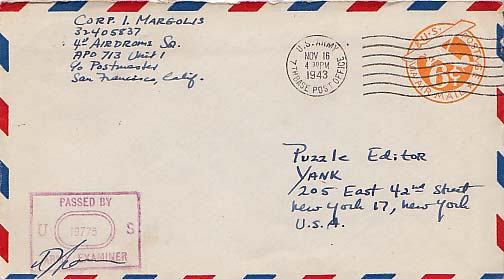 CORP. I. MARGOLIS
32405837
4th AIRDROME SQ.
APO 713 Unit 1
c/o Postmaster
San Francisco, Calif.
U.S. ARMY
NOV 16
4 30PM
1943
7TH BASE POST OFFICE
U.S. POSTAGE
6¢
VIA AIR MAIL
Puzzle Editor
YANK
205 East 42nd Street
New York 17, New York
U.S.A.
PASSED BY
U 19775 S
ARMY EXAMINER